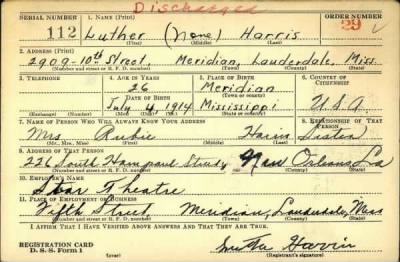 Discharged
SERIAL NUMBER 1. NAME (Print) ORDER NUMBER
112 Luther (None) Harris 29
(First) (Middle) (Last)
2. ADDRESS (Print)
2909-10th Street, Meridian, Lauderdale, Miss.
(Number and street or R. F. D. number) (Town) (County) (State)
3. TELEPHONE 4. AGE IN YEARS 5. PLACE OF BIRTH 6. COUNTRY OF CITIZENSHIP
26 Meridian
DATE OF BIRTH (Town or county)
July 4, 1914 Mississippi U.S.A.
(Exchange) (Number) (Mo.) (Day) (Yr.) (State or country)
7. NAME OF PERSON WHO WILL ALWAYS KNOW YOUR ADDRESS 8. RELATIONSHIP OF THAT PERSON
Mrs Rubie Sister
(Mr., Mrs., Miss) (First) (Middle) (Last)
9. ADDRESS OF THAT PERSON
226 South New Orleans La
(Number and street or R. F. D. number) (Town) (County) (State)
10. EMPLOYER'S NAME
Star Theatre
11. PLACE OF EMPLOYMENT OR BUSINESS
Fifth Street Meridian, Lauderdale, Miss
(Number and street or R. F. D. number) (Town) (County) (State)
I AFFIRM THAT I HAVE VERIFIED ABOVE ANSWERS AND THAT THEY ARE TRUE.
REGISTRATION CARD
D. S. S. Form 1 (Registrant's signature)